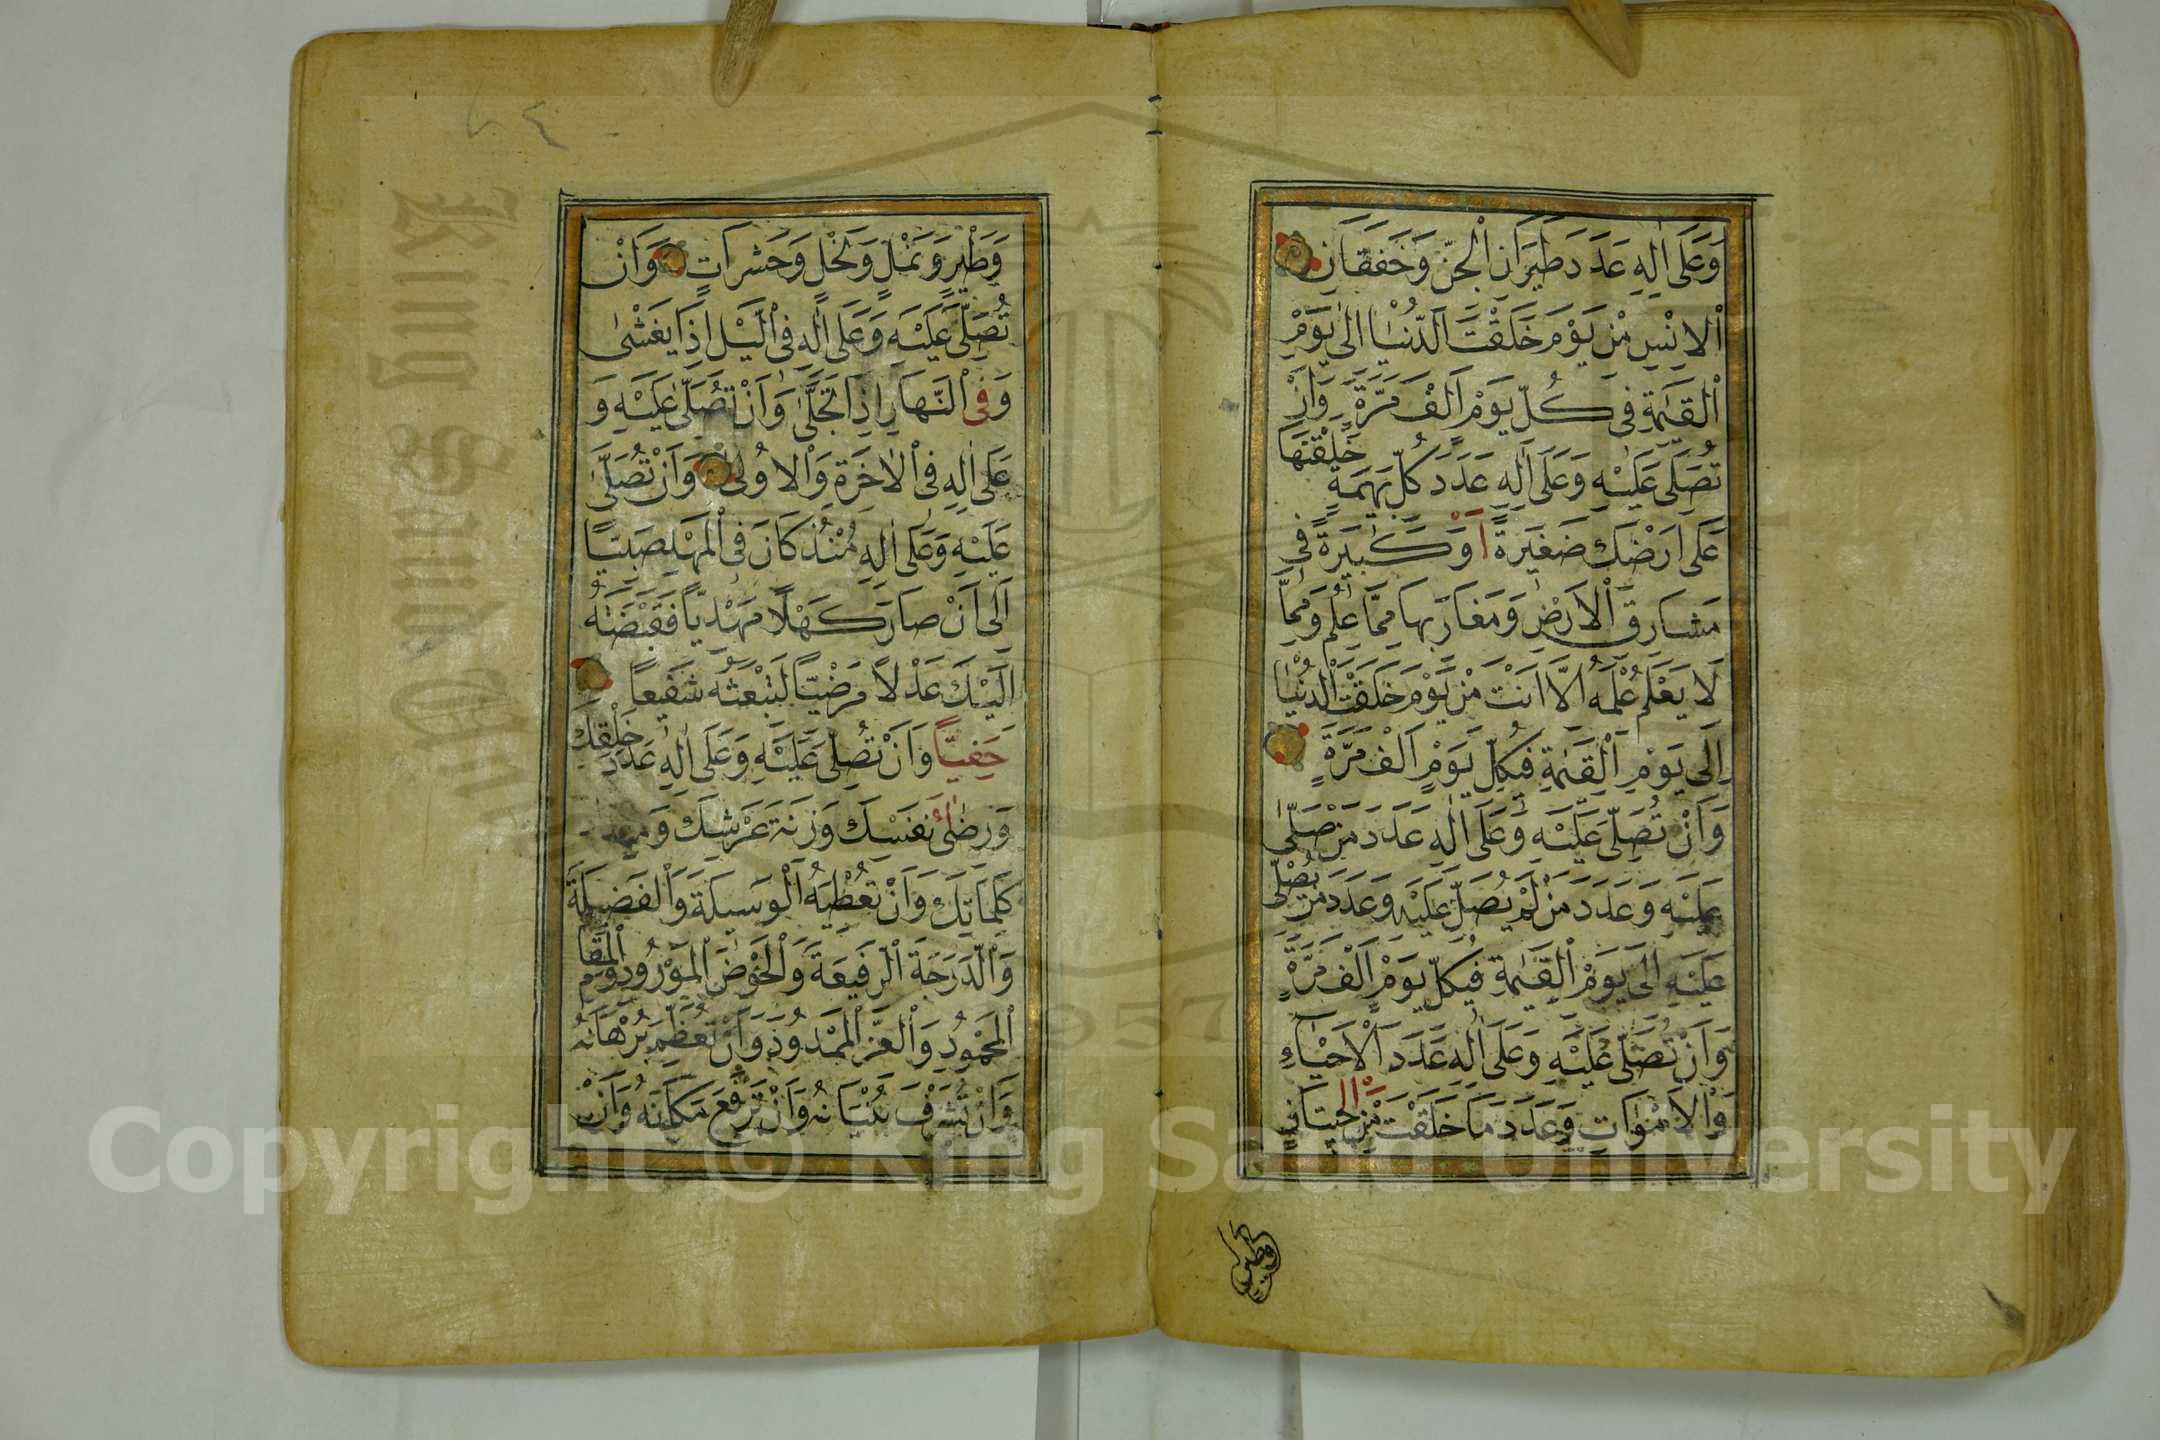 وَعَلَى اٰلِهِ عَدَدَ طَيَرَانِ الْجِنِّ وَخَفَقَانِ
الْاِنْسِ مِنْ يَوْمَ خَلَقْتَ الدُّنْيَا اِلٰى يَوْمِ
الْقِيٰمَةِ فِى كُلِّ يَوْمٍ اَلْفَ مَرَّةٍ وَاَنْ
تُصَلِّىَ عَلَيْهِ وَعَلَى اٰلِهِ عَدَدَ كُلِّ بَهِيمَةٍ خَلَقْتَهَا
عَلٰى اَرْضِكَ صَغِيرَةً اَوْ كَبِيرَةً فِى
مَشَارِقِ الْاَرْضِ وَمَغَارِبِهَا مِمَّا عُلِمَ وَمِمَّا
لَا يَعْلَمُ عِلْمَهُ اِلَّا اَنْتَ مِنْ يَوْمَ خَلَقْتَ الدُّنْيَا
اِلَى يَوْمِ الْقِيٰمَةِ فِى كُلِّ يَوْمٍ اَلْفَ مَرَّةٍ
وَاَنْ تُصَلِّىَ عَلَيْهِ وَعَلَى اٰلِهِ عَدَدَ مَنْ صَلّٰى
عَلَيْهِ وَعَدَدَ مَنْ لَمْ يُصَلِّ عَلَيْهِ وَعَدَدَ مَنْ يُصَلِّى
عَلَيْهِ اِلَى يَوْمِ الْقِيٰمَةِ فِى كُلِّ يَوْمٍ اَلْفَ مَرَّةٍ
وَاَنْ تُصَلِّىَ عَلَيْهِ وَعَلَى اٰلِهِ عَدَدَ الْاَحْيَاءِ
وَالْاَمْوَاتِ وَعَدَدَ مَا خَلَقْتَ مِنْ الْحِيتَانِ
وطير
وَطَيْرٍ وَنَمْلٍ وَنَحْلٍ وَحَشَرَاتٍ وَاَنْ
تُصَلِّىَ عَلَيْهِ وَعَلَى اٰلِهِ فِى الَّيْلِ اِذَا يَغْشٰى
وَفِى النَّهَارِ اِذَا تَجَلّٰى وَاَنْ تُصَلِّىَ عَلَيْهِ وَ
عَلَى اٰلِهِ فِى الْاٰخِرَةِ وَالْاُولٰى وَاَنْ تُصَلِّىَ
عَلَيْهِ وَعَلَى اٰلِهِ مُنْذُ كَانَ فِى الْمَهْدِ صَبِيًّا
اِلَى اَنْ صَارَ كَهْلًا مَهْدِيًّا فَقَبَضْتَهُ
اِلَيْكَ عَدْلًا مَرْضِيًّا لِتَبْعَثَهُ شَفِيعًا
حَفِيًّا وَاَنْ تُصَلِّىَ عَلَيْهِ وَعَلَى اٰلِهِ عَدَدَ خَلْقِكَ
وَرِضَاءَ نَفْسِكَ وَزِنَةَ عَرْشِكَ وَمِدَادَ
كَلِمَاتِكَ وَاَنْ تُعْطِيَهُ الْوَسِيلَةَ وَالْفَضِيلَةَ
وَالدَّرَجَةَ الرَّفِيعَةَ وَالْحَوْضَ الْمَوْرُودَ وَالْمَقَامَ
الْمَحْمُودَ وَالْعِزَّ الْمَمْدُودَ وَاَنْ تُعَظِّمَ بُرْهَانَهُ
وَاَنْ تُشَرِّفَ بُنْيَانَهُ وَاَنْ تَرْفَعَ مَكَانَهُ وَاَنْ
King Saud Univ
1957
Copyright © King Saud University